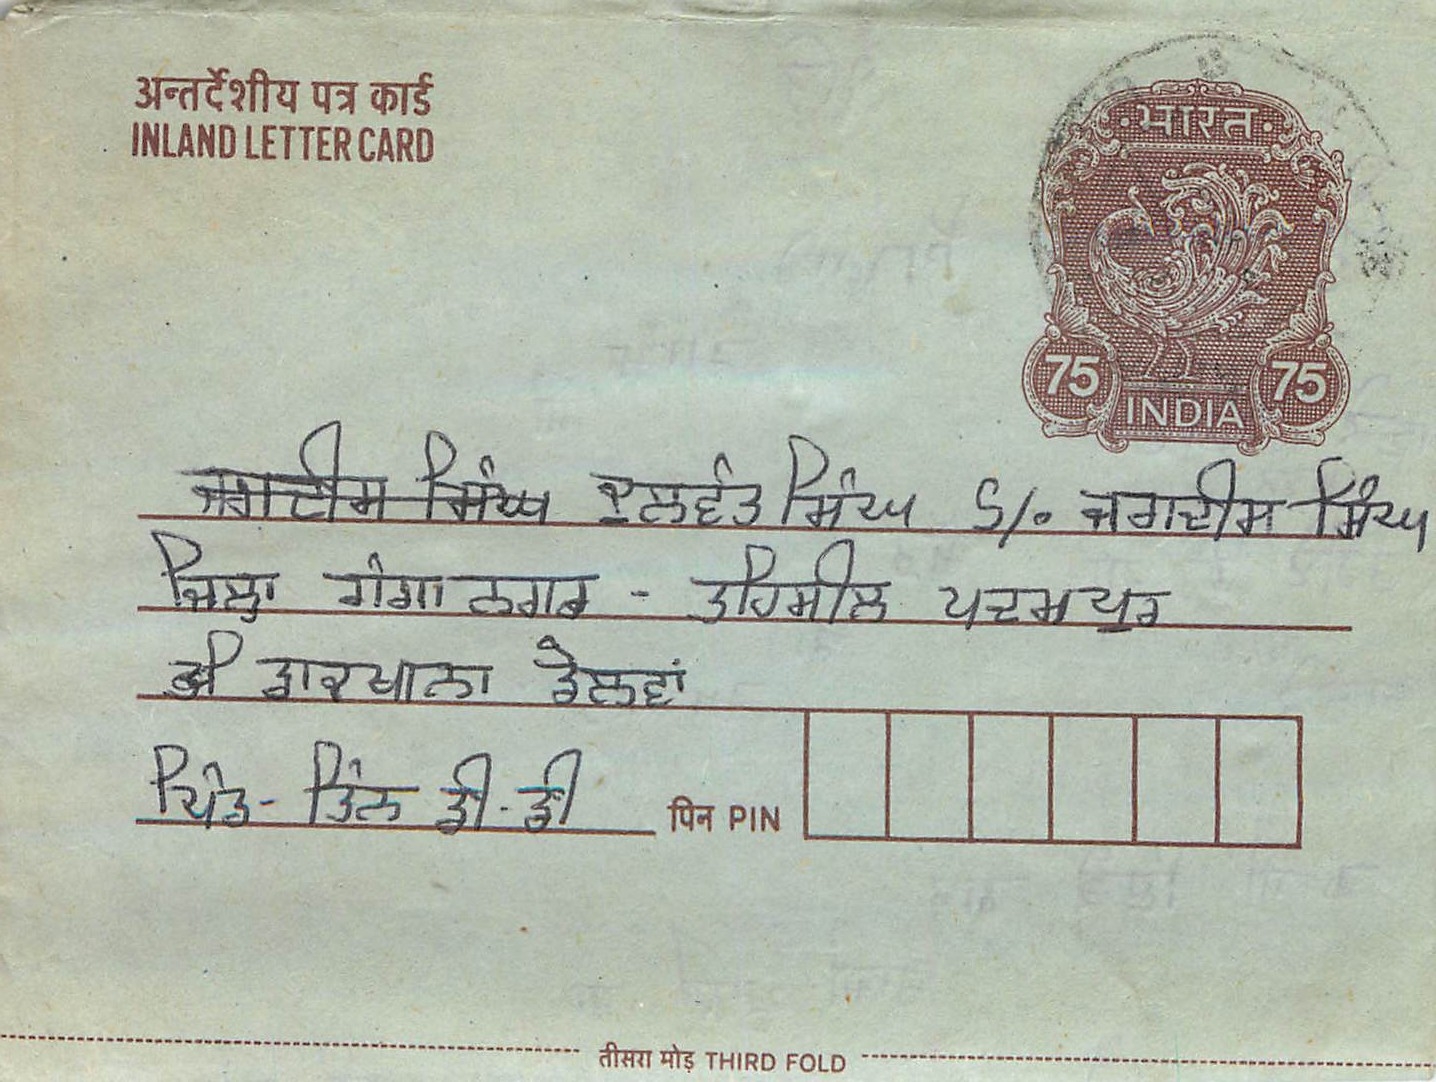 अन्तर्देशीय पत्र कार्ड
INLAND LETTER CARD
भारत
75 75
INDIA
ਜਗਦੀਸ ਸਿੰਘ ਕੁਲਵੰਤ ਸਿੰਘ S/o ਜਗਦੀਸ ਸਿੰਘ
ਜਿਲਾ ਗੰਗਾ ਨਗਰ - ਤਹਿਸੀਲ ਪਦਮਪੁਰ
ਡਾਕਖਾਨਾ ਡੇਲਵਾਂ
ਪਿੰਡ - ਤਿੰਨ ਡੀ. ਡੀ
पिन PIN
तीसरा मोड़ THIRD FOLD